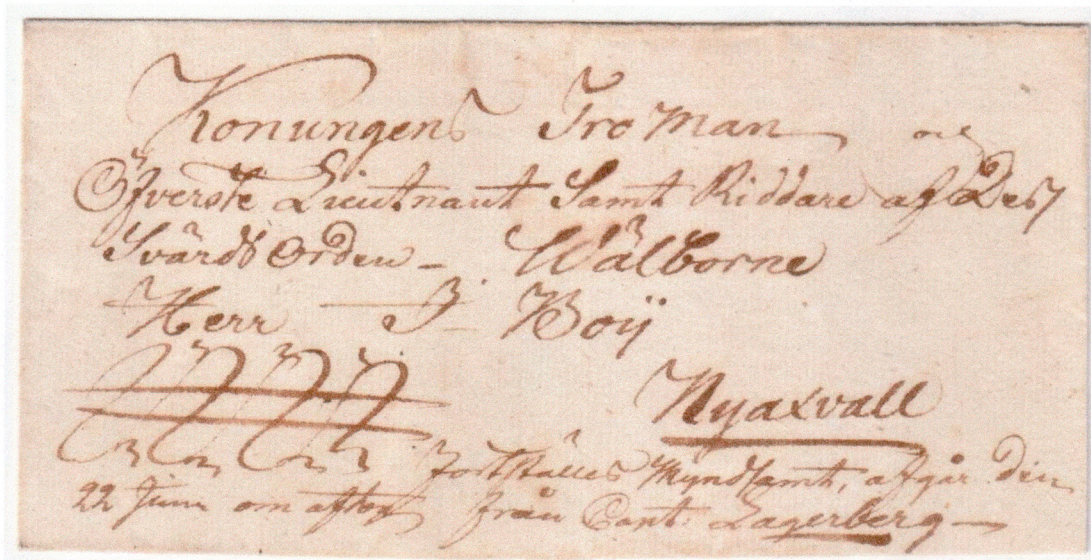 Konungens Tro Man och
Öfverste Lieutnant Samt Riddare af Dess
Svärds Orden – Wälborne
Herr J. Boij
Nyaxvall
Fortskaffes skyndsamt, afgår den
22 Juni om afton från Capt. Lagerberg